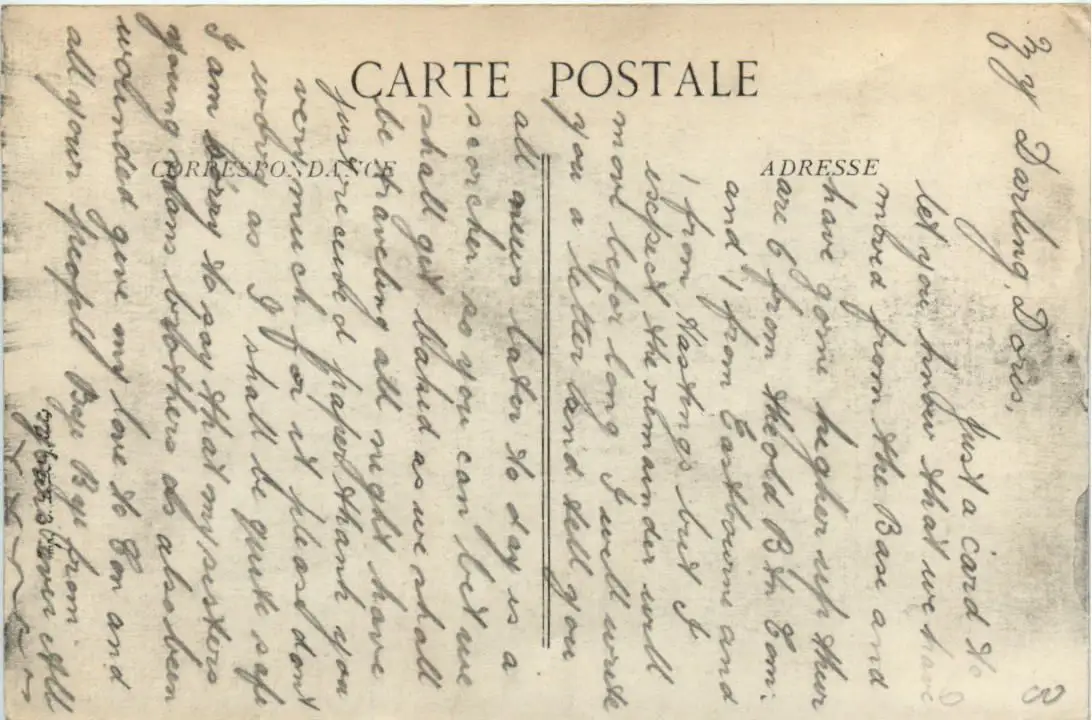 CARTE POSTALE
CORRESPONDANCE
ADRESSE
My Darling Doris,
Just a card to
let you know that we have
moved from the Base and
have gone higher up ther
are 6 from the old Bth Com:
and 1 from Eastbourne and
1 from Hastings but I
expect the remainder will
move befor long I will write
you a letter and tell you
all news later to day is a
scorcher so you can bet we
shall get baked as we shall
be traveling all night have
just received paper thank you
very much for it please dont
worry as I shall be quite safe
I am sorry to say that my sisters
young mans brothers as also been
wounded give my love to Con and
all your people Bye Bye from
8